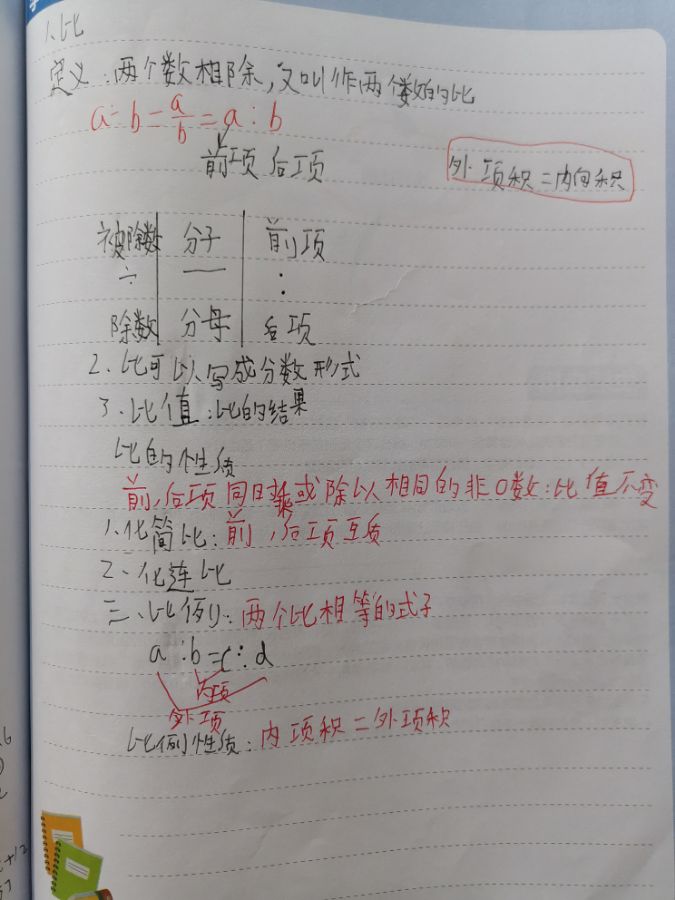 1.比
定义:两个数相除,又叫作两个数的比
a÷b=a/b=a:b
前项 后项
外项积=内向积
被除数 | 分子 | 前项
÷ | — | :
除数 | 分母 | 后项
2.比可以写成分数形式
3.比值:比的结果
比的性质
前,后项同时乘或除以相同的非0数:比值不变
1.化简比:前,后项互质
2.化连比
三.比例:两个比相等的式子
a:b=c:d
内项
外项
比例性质:内项积=外项积